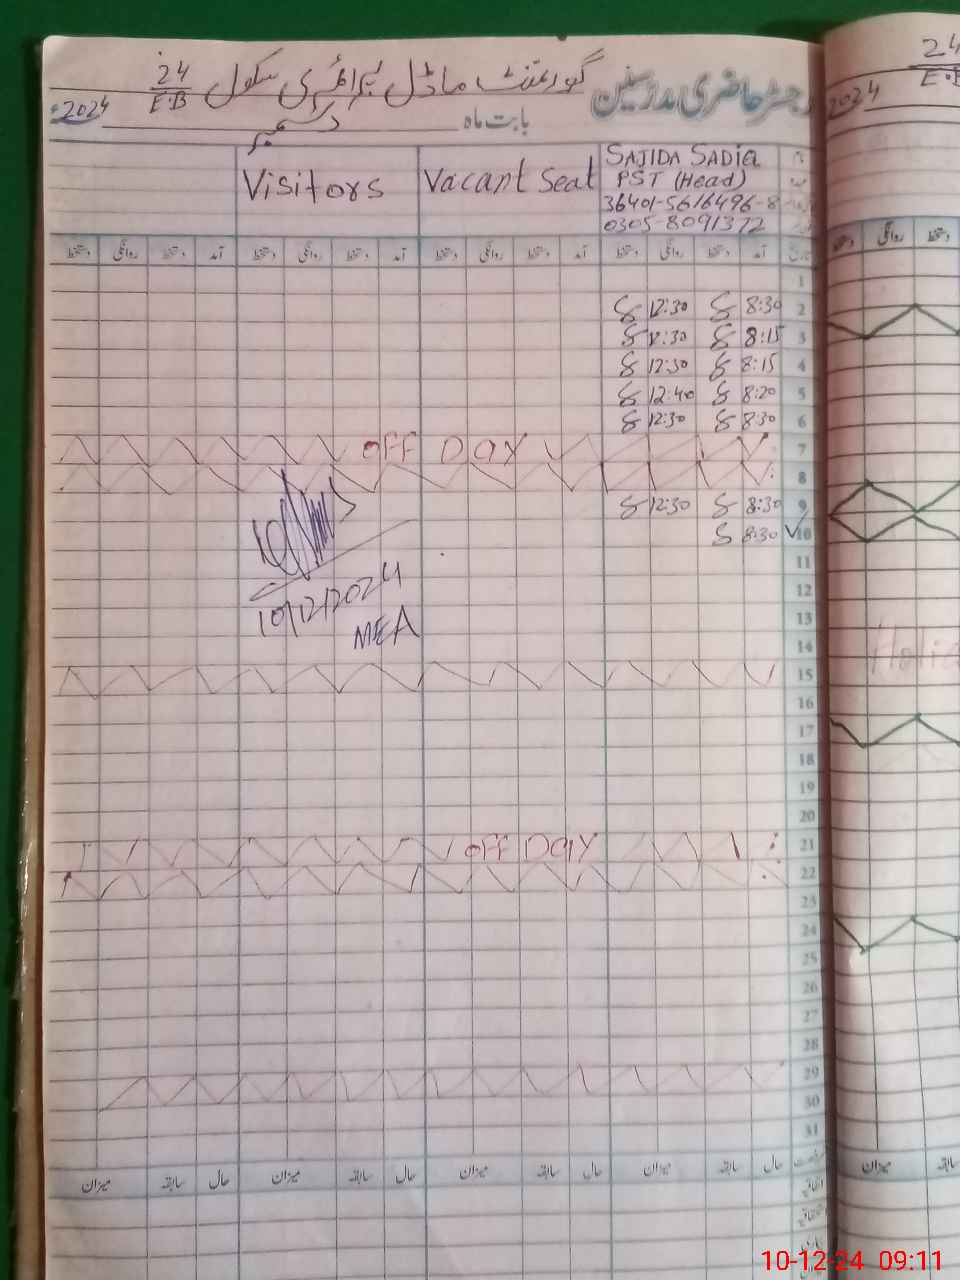 رجسٹر حاضری مدرسین گورنمنٹ ماڈل پرائمری سکول 24/E.B
بابت ماہ دسمبر 2024ء
Visitors
Vacant Seat
SAJIDA SADIA
PST (Head)
36401-5616496-8
0305-8091372
دستخط روانگی دستخط آمد دستخط روانگی دستخط آمد دستخط روانگی دستخط آمد دستخط روانگی دستخط آمد تاریخ
1
12:30 8:30 2
12:30 8:15 3
12:30 8:15 4
12:40 8:20 5
12:30 8:30 6
OFF DAY 7
8
12:30 8:30 9
8:30 10
10/12/2024
MEA
11
12
13
14
15
16
17
18
19
20
OFF DAY 21
22
23
24
25
26
27
28
29
30
31
میزان سابقہ حال میزان سابقہ حال میزان سابقہ حال میزان سابقہ حال
24
E.B
2024
دستخط روانگی دستخط
میزان سابقہ
10-12-24 09:11